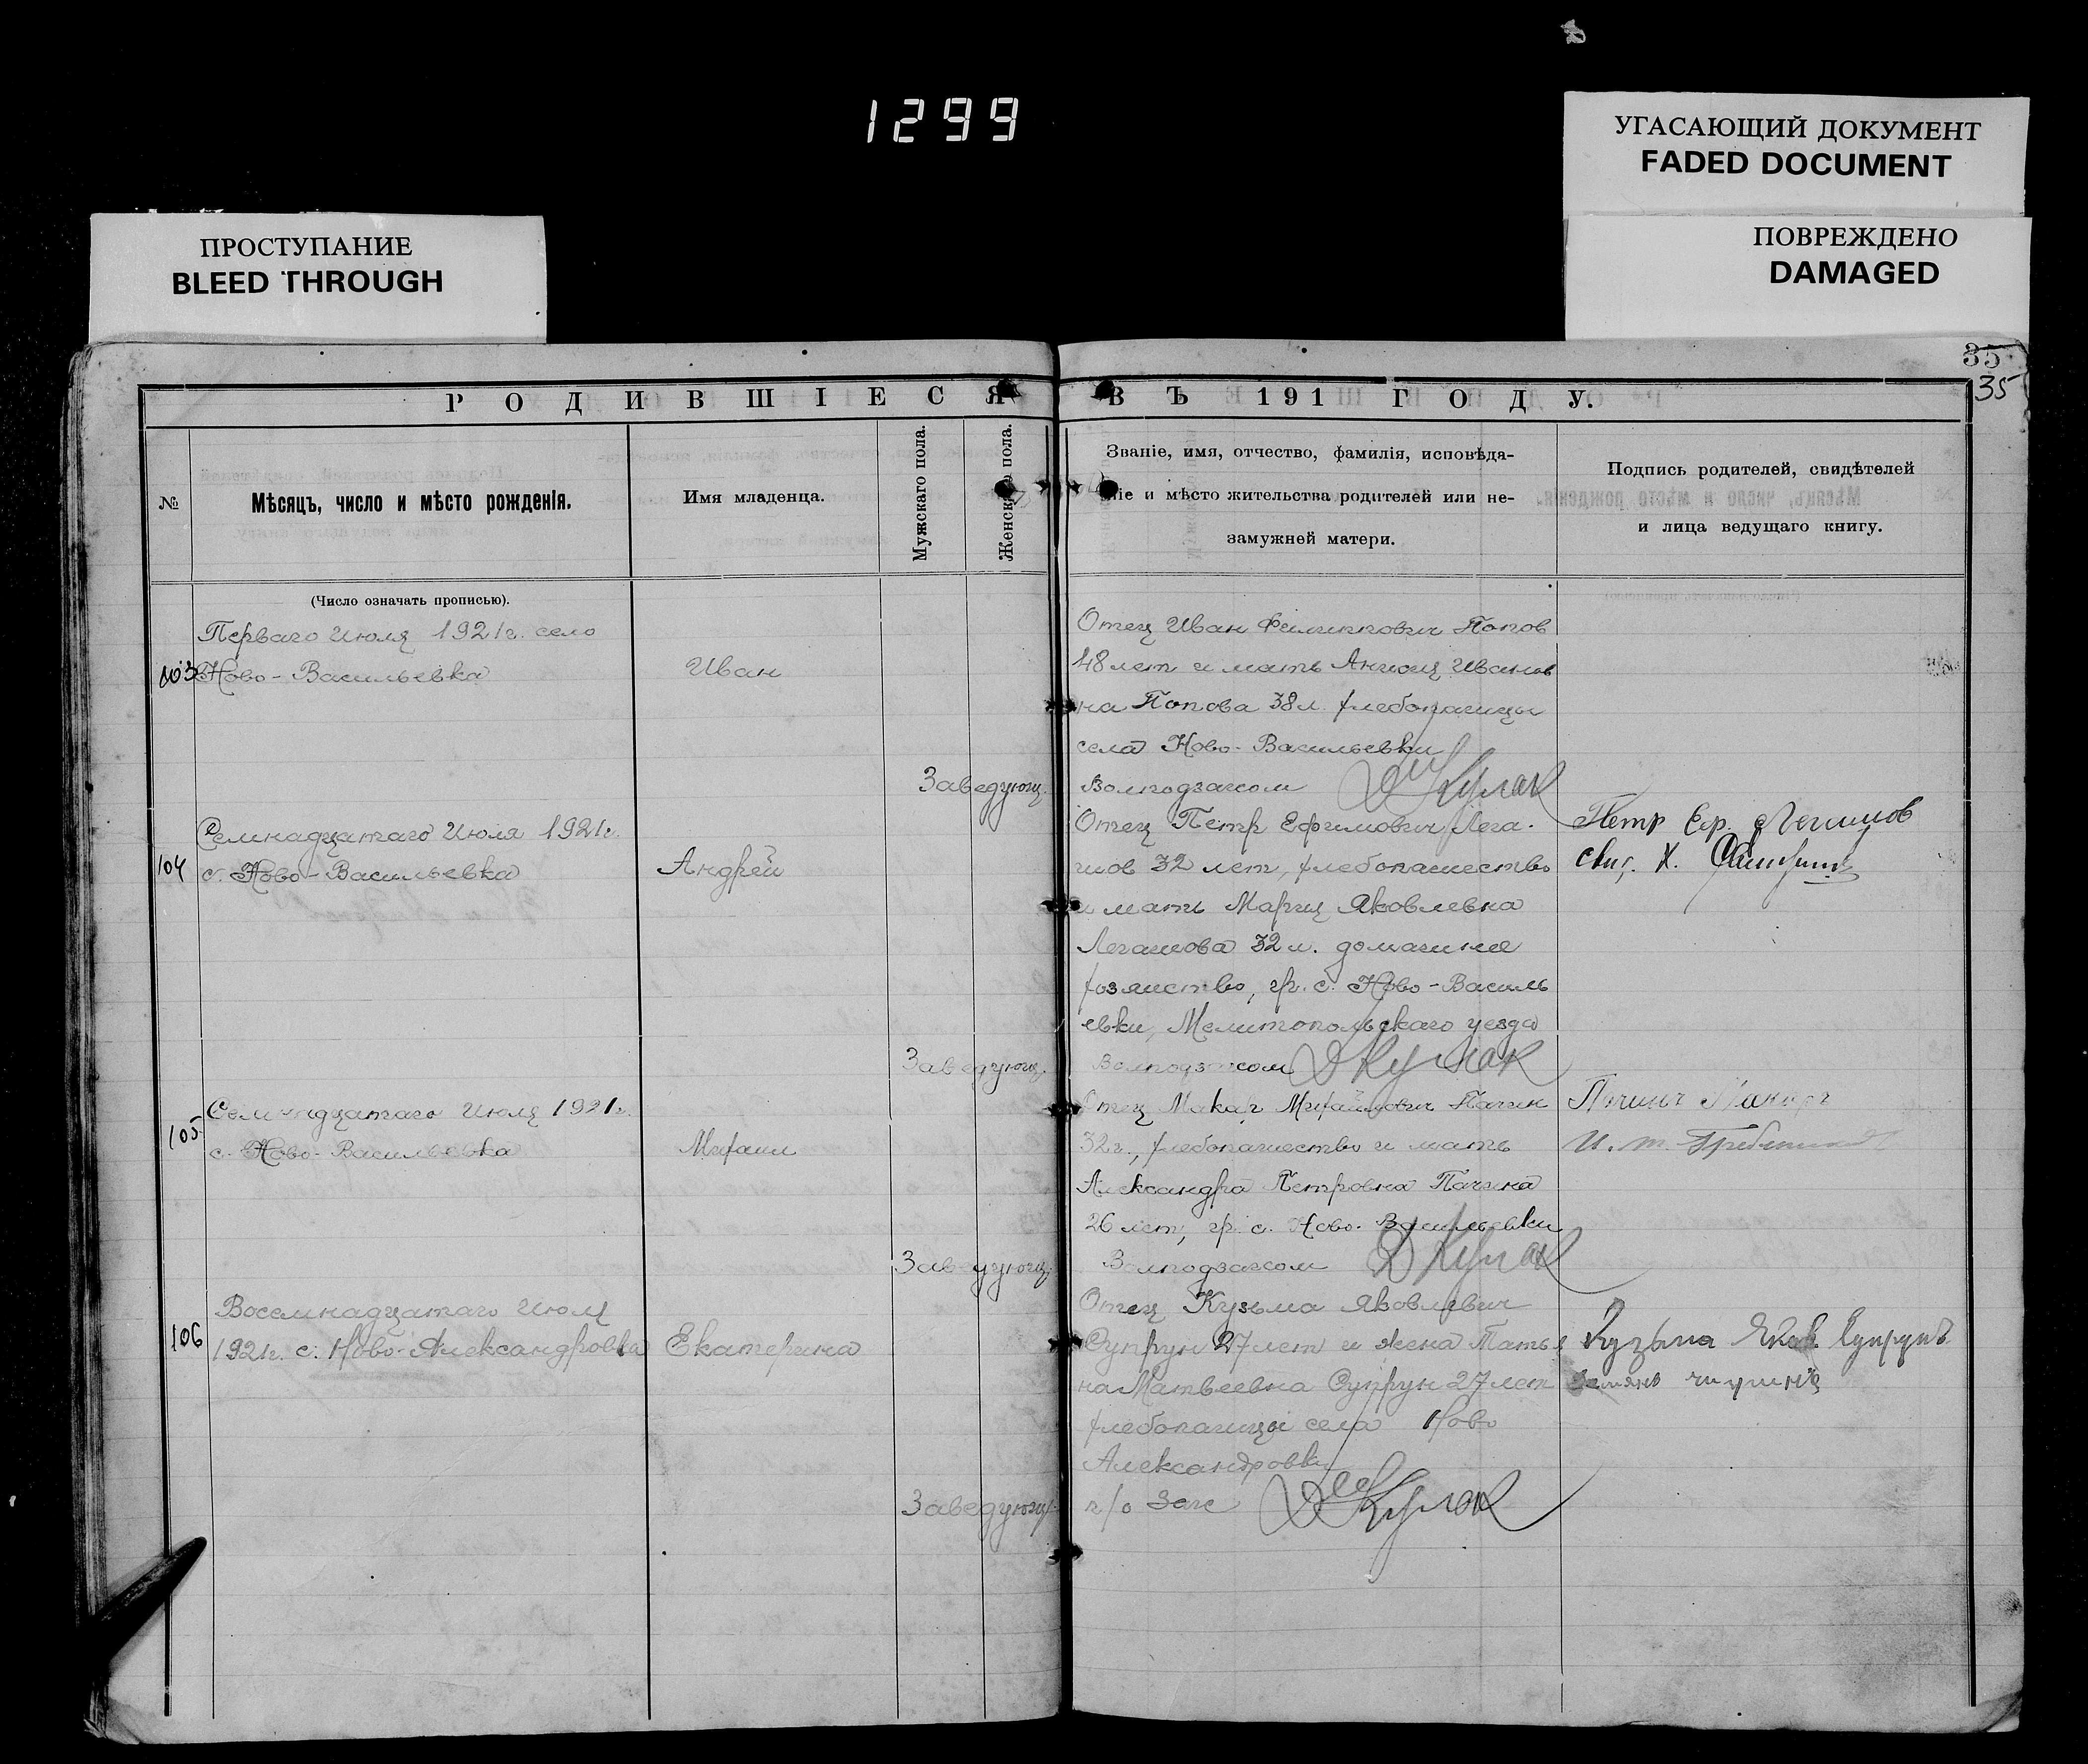 1299
УГАСАЮЩИЙ ДОКУМЕНТ
FADED DOCUMENT
ПОВРЕЖДЕНО
DAMAGED
ПРОСТУПАНИЕ
BLEED THROUGH
35
35
РОДИВШІЕСЯ ВЪ 191 ГОДУ.
№
Мѣсяцъ, число и мѣсто рожденія.
Имя младенца.
Мужскаго пола.
Женскаго пола.
Званіе, имя, отчество, фамилія, исповѣда-
ніе и мѣсто жительства родителей или не-
замужней матери.
Подпись родителей, свидѣтелей
и лица ведущаго книгу.
(Число означать прописью).
103
Перваго Июля 1921г. село
Ново-Васильевка
Иван
Отец Иван Филиппович Попов
48 лет и мать Иванов
на Попова 38 л. хлебопашцы
села Ново-Васильевки
Заведующ. Волподзагсом Кулак
104
Семнадцатаго Июля 1921г.
с. Ново-Васильевка
Андрей
Отец Петр Ефимович Лега-
шов 32 лет, хлебопашество
и мать Мария Яковлевна
Легашова 32 л. домашнее
хозяйство, гр. с. Ново-Василь
евки, Мелитопольскаго уезда
Заведующ. Волподзагсом Кулак
Петр Еф.
105
Семнадцатаго Июля 1921г.
с. Ново-Васильевка
Михаил
Отец Макар Михайлович Пачин
32 г., хлебопашество и мать
Александра Петровна Пачина
26 лет, гр. с. Ново-Васильевки
Заведующ. Волподзагсом Кулак
106
Восемнадцатаго Июля
1921г. с. Ново-Александровка
Екатерина
Отец Кузьма Яковлевич
Супрун 27 лет и жена Татья
на Матвеевна Супрун 27 лет
хлебопашцы села Ново
Александровки
Заведующ. п/о Загс Кулак
Кузьма Яков. Супрунъ